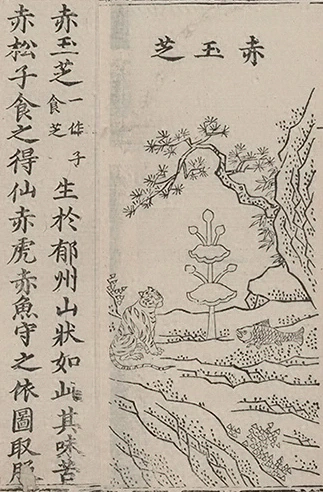 赤玉芝
赤玉芝一作子食芝生於郁州山狀如山其味苦
赤松子食之得仙赤虎赤魚守之依圖取服